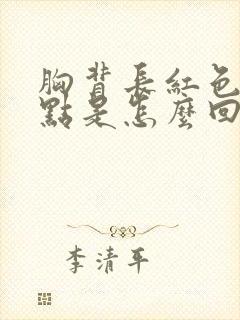 胸背長紅色
點是怎麼回
李清平